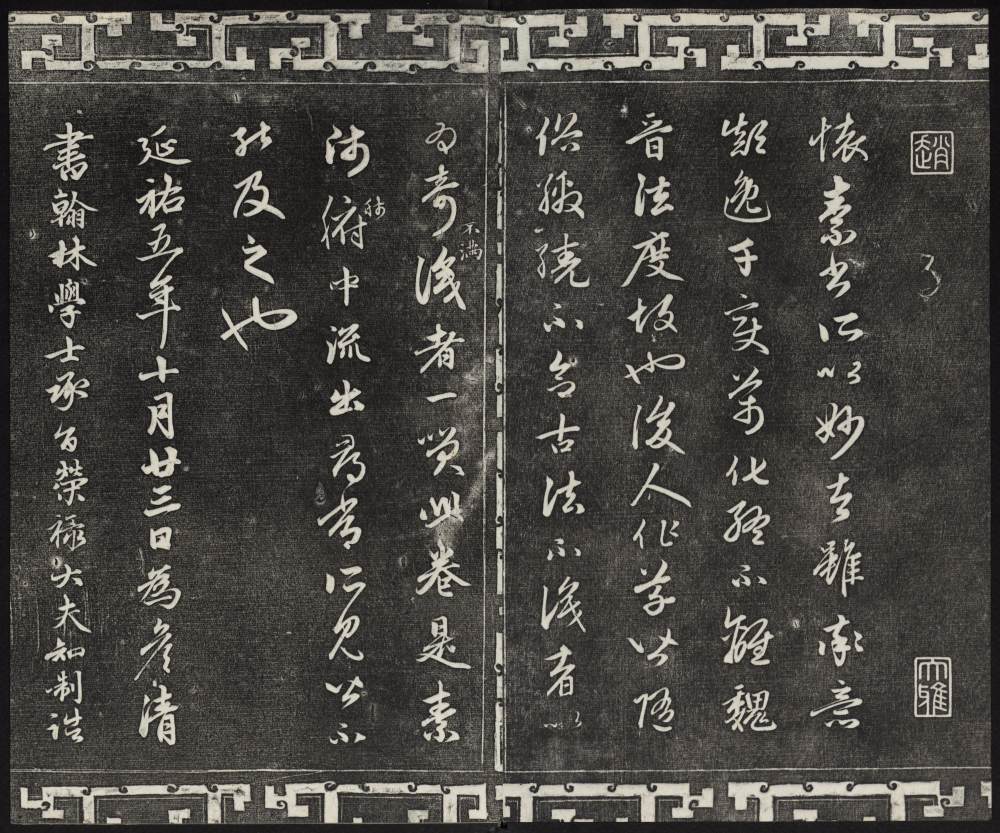 趙
大雅
懷素書所以妙者雖率意
顛逸千變萬化終不離魏
晉法度故也後人作草皆隨
俗繳繞不合古法不識者以
為奇不滿識者一笑此卷是素
師肺腑中流出尋常所見皆不
能及之也
延祐五年十月廿三日為彥清
書翰林學士承旨榮祿大夫知制誥